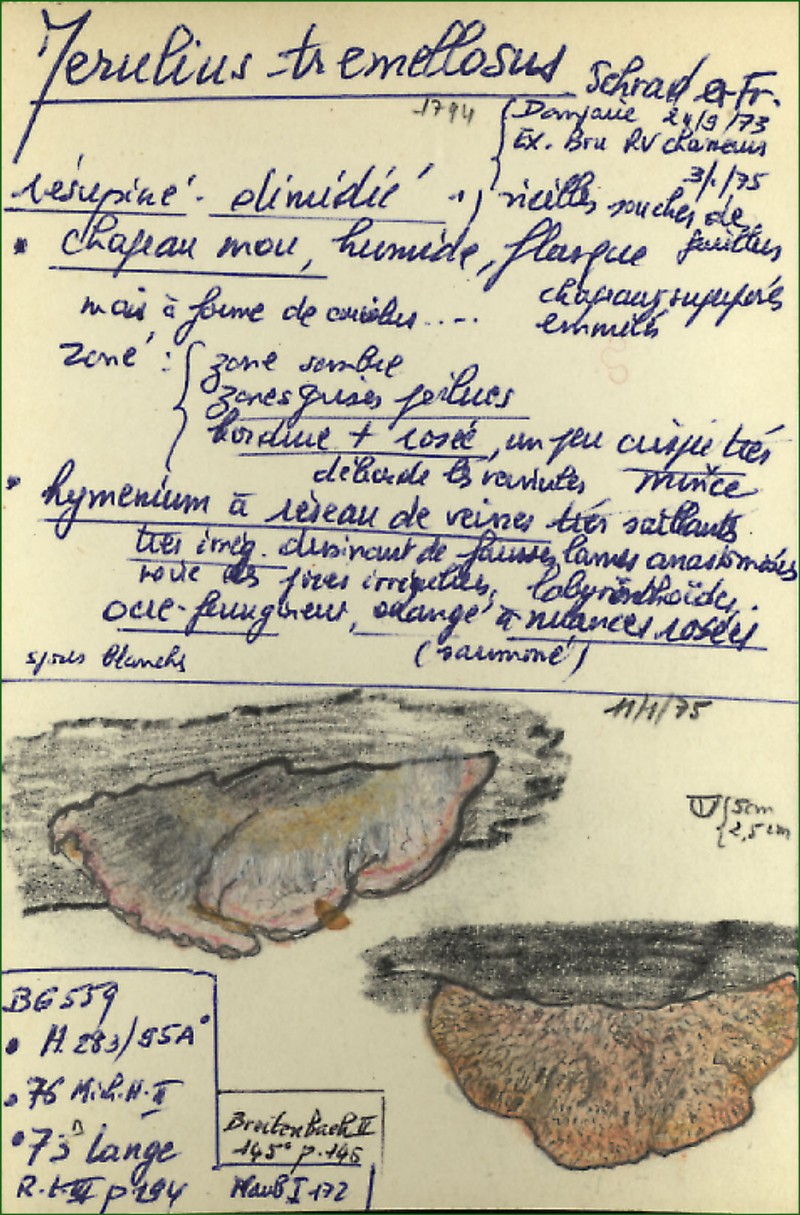 Merulius tremellosus Schrad ex Fr.
1794 { Damjanic 24/9/73
Ex. Bru RV
3/1/75
résupiné - dimidié vieilles souches de
feuillus
* chapeau mou, humide, flasque
chapeaux superposés
mais à forme de ....
zoné : { zone sombre
zones grises
bordure + rosée, un peu crispée très
mince
déborde les
* hymenium à réseau de veines très saillants
très irrég. dessinant de fausses lames anastomosées
voire des pores irréguliers, labyrinthoïdes.
ocre-ferrugineux, orangé à nuances rosées
(saumoné)
spores blanches
11/1/75
5cm
2,5cm
BG 559
• H. 283/95A°
• 76 Mich. H. II
• 73 Lange
R. p 194
Breitenbach II
145° p. 146
I 172